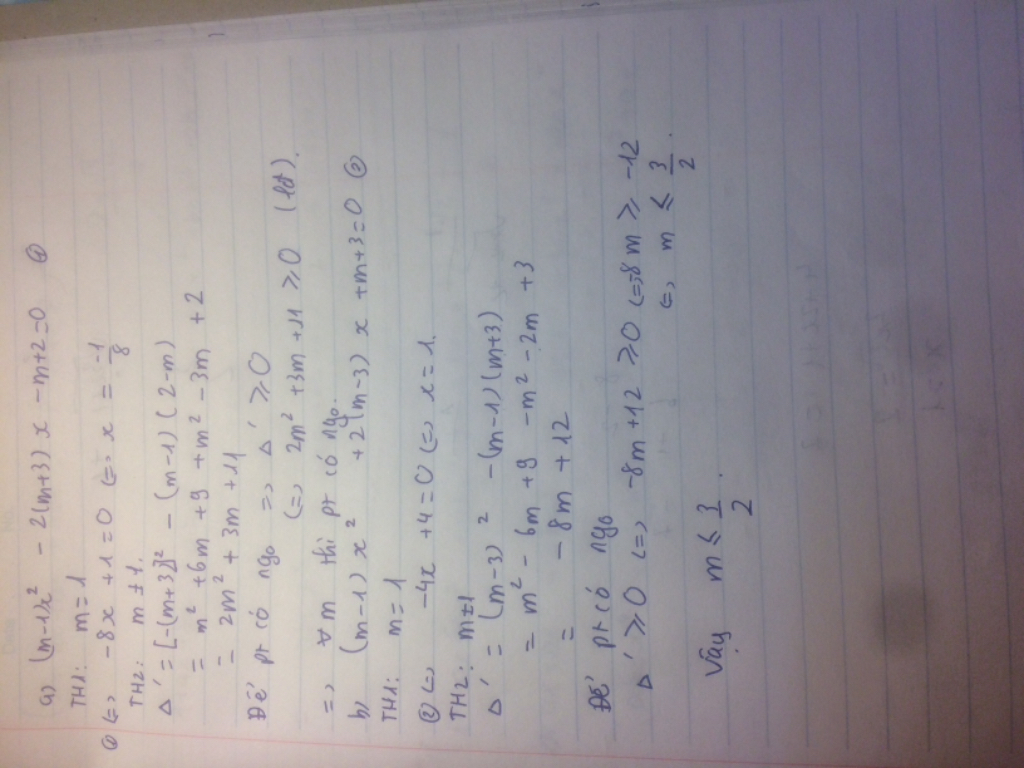 a) (m-1)x² - 2(m+3)x - m+2=0 ①
TH1: m=1
① (=) -8x+1=0 (=) x = -1/8
TH2: m≠1.
Δ' = [-(m+3)]² - (m-1)(2-m)
= m²+6m+9+m²-3m+2
= 2m²+3m+11
Để pt có ngo => Δ' ≥ 0
(=) 2m²+3m+11 ≥ 0 (lđ).
=> ∀m thì pt có ngo.
b) (m-1)x² + 2(m-3)x + m+3=0 ②
TH1: m=1
② (=) -4x+4=0 (=) x=1.
TH2: m≠1
Δ' = (m-3)² - (m-1)(m+3)
= m²-6m+9-m²-2m+3
= -8m+12
Để pt có ngo
Δ' ≥ 0 (=) -8m+12 ≥ 0 (=) -8m ≥ -12
(=) m ≤ 3/2.
Vậy m ≤ 3/2.